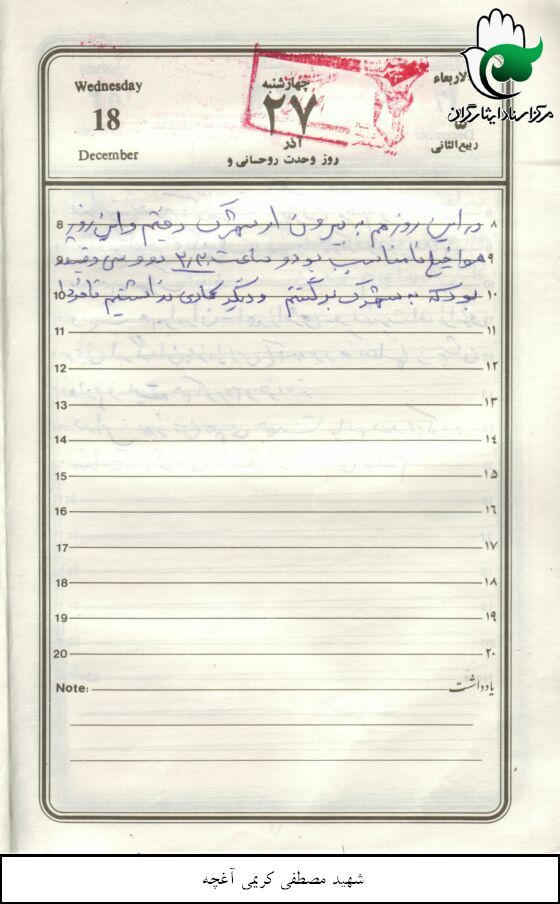 مرکز اسناد ایثارگران
Wednesday
18
December
چهارشنبه
۲۷
آذر
روز وحدت روحانی و
الاربعاء
ربیع‌الثانی
8 در این روز هم به بیرون از شهرک رفتیم و این روز ۸
9 هوا خیلی نامناسب بود و ساعت ۲/۳۰ دو و سی دقیقه ۹
10 بود که به شهرک برگشتیم و دیگر کاری نداشتیم تا فردا ۱۰
11 ۱۱
12 ۱۲
13 ۱۳
14 ۱۴
15 ۱۵
16 ۱۶
17 ۱۷
18 ۱۸
19 ۱۹
20 ۲۰
Note: یادداشت
شهید مصطفی کریمی آغچه